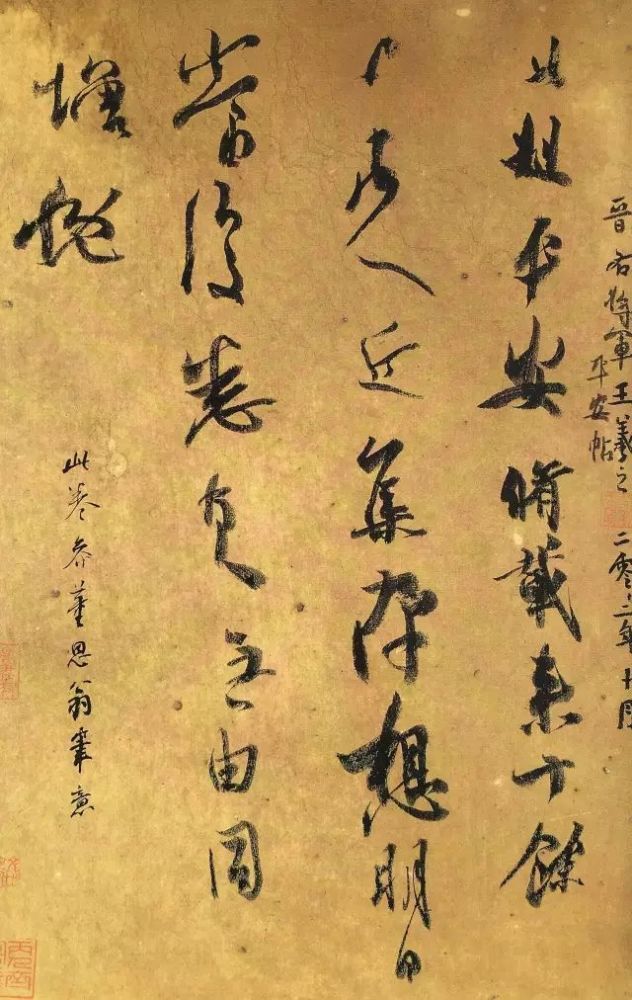 晋右將軍王羲之
平安帖
年十月
此粗平安脩載来十餘
日諸人近集存想明日
當復悉来无由同
增慨
此卷参董思翁筆意